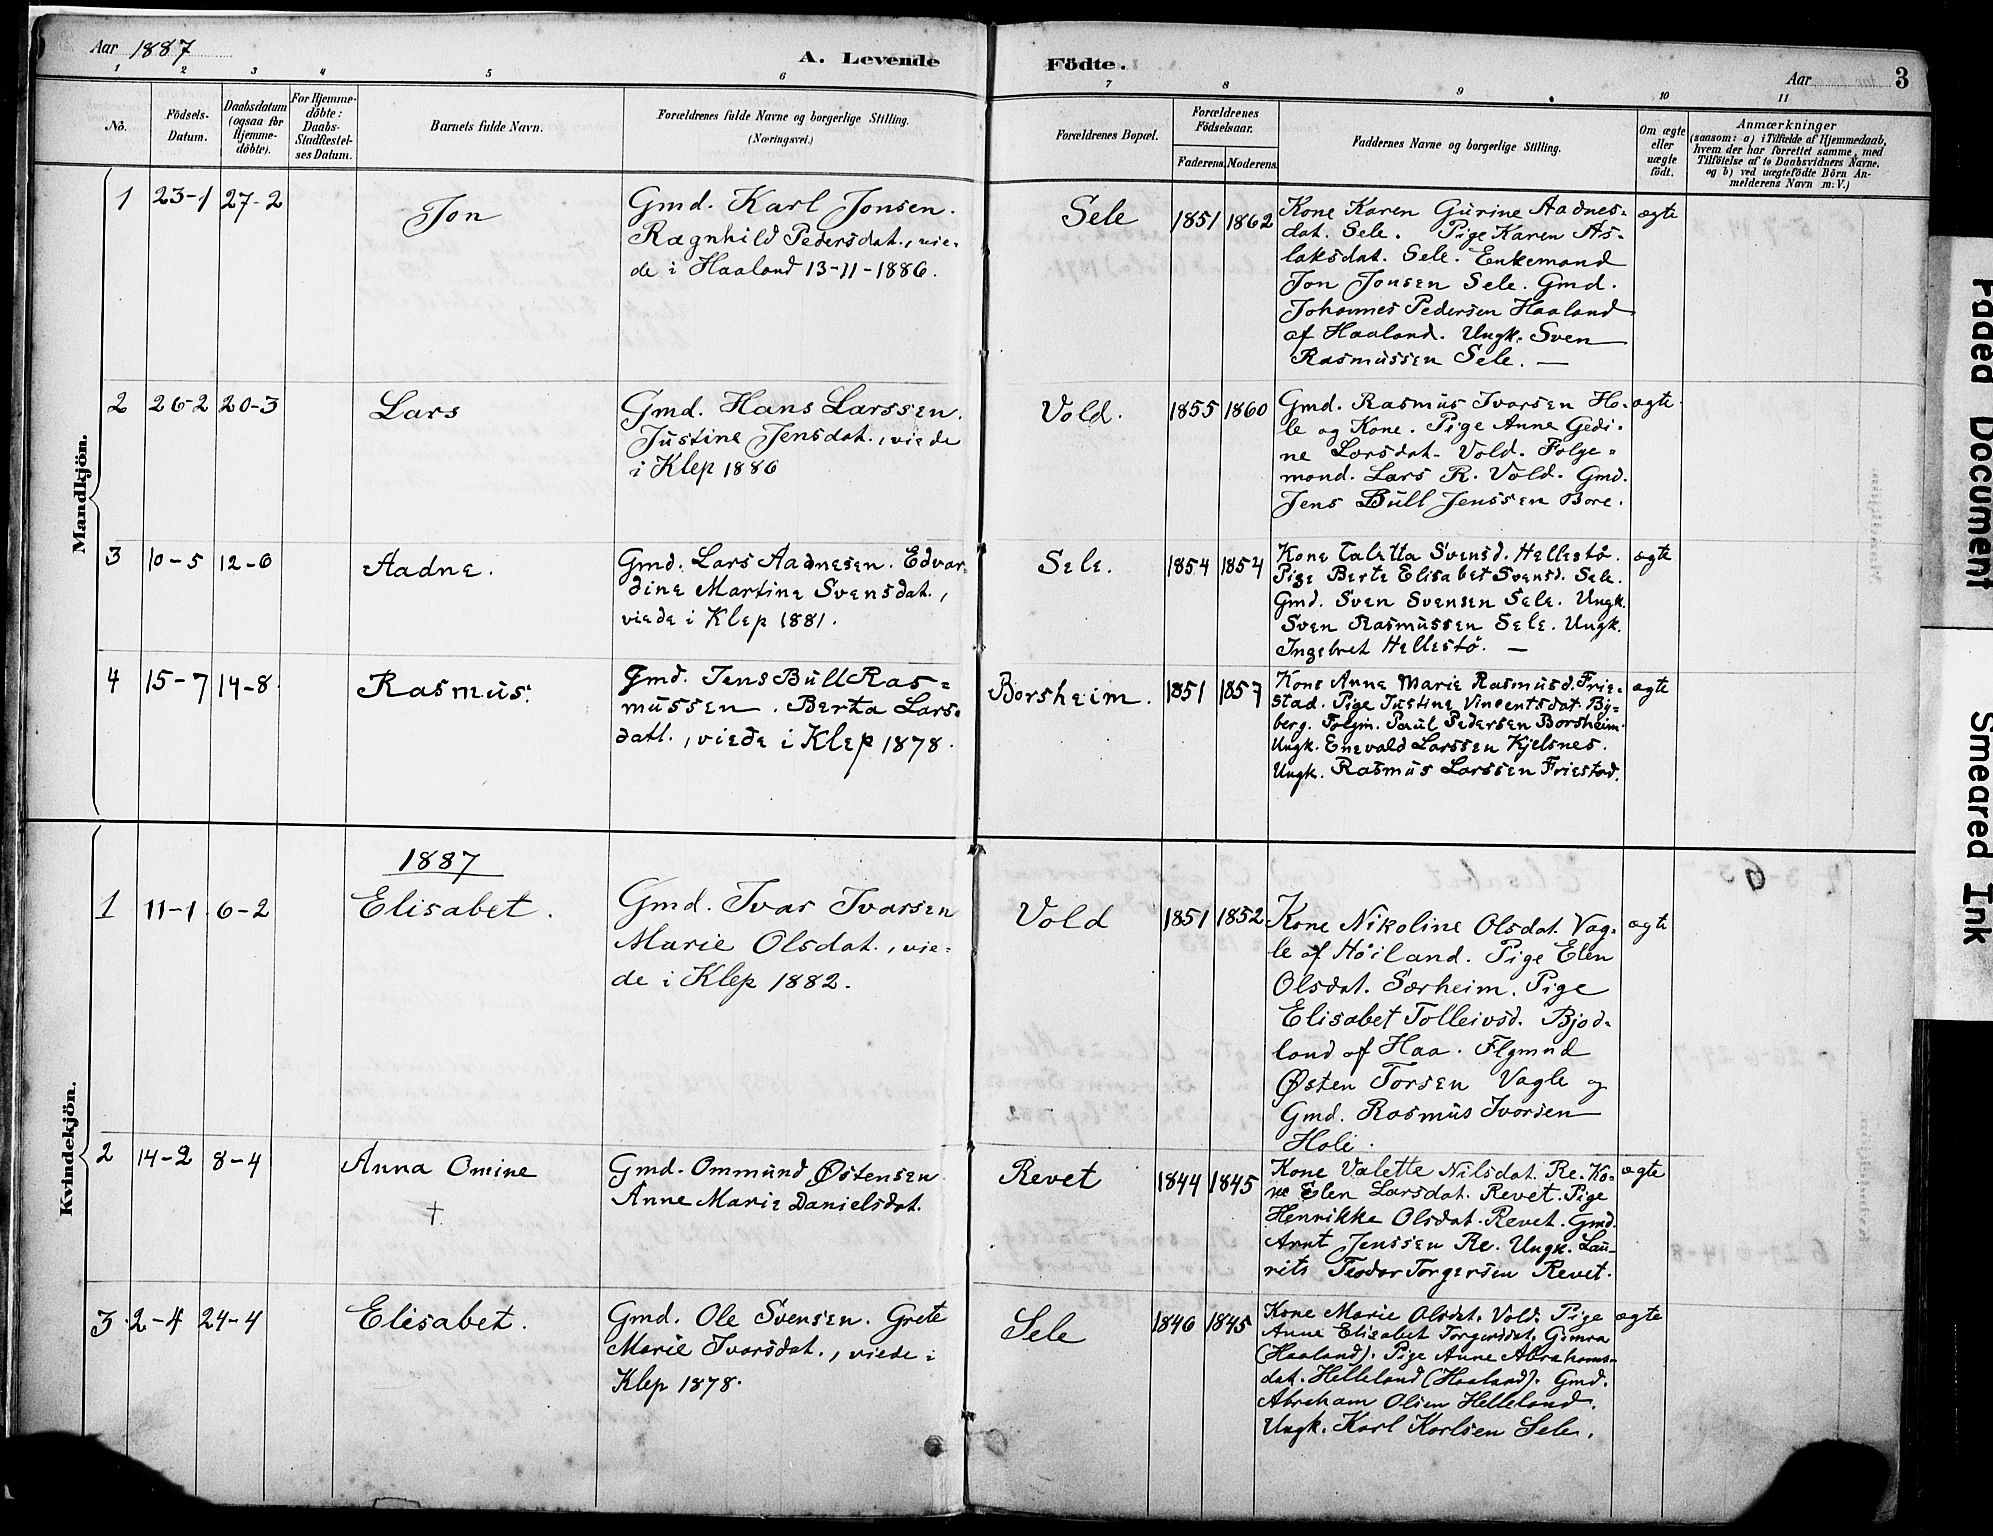 Aar 1887
A. Levende Födte.
Aar 3
1 2 3 4 5 6 7 8 9 10 11
No.
Födsels-
Datum.
Daabsdatum
(ogsaa for
Hjemme-
döbte).
For Hjemme-
döbte:
Daabs-
Stadfestel-
ses Datum.
Barnets fulde Navn.
Forældrenes fulde Navne og borgerlige Stilling.
(Næringsvei.)
Forældrenes Bopæl.
Forældrenes
Födselsaar.
Faderens. Moderens.
Faddernes Navne og borgerlige Stilling.
Om ægte
eller
uægte
födt.
Anmærkninger
(saasom: a) i Tilfælde af Hjemmedaab,
hvem der har forrettet samme, med
Tilföielse af to Daabsvidners Navne,
og b) ved uægtefödte Börn An-
melderens Navn m: V.)
Mandkjön.
1 23-1 27-2 Jon
Gmd. Karl Jonsen.
Ragnhild Pedersdat., vie-
de i Haaland 13-11-1886.
Sele 1851 1862
Kone Karen Gurine Aadnes-
dat. Sele. Pige Karen As-
laksdat. Sele. Enkemand
Jon Jonsen Sele. Gmd.
Johannes Pedersen Haaland
af Haaland. Ungk. Sven
Rasmussen Sele. —
ægte
2 26-2 20-3 Lars
Gmd. Hans Larssen.
Justine Jensdat., viede
i Klep 1886
Vold. 1855 1860
Gmd. Rasmus Ivarsen Ho-
le og Kone. Pige Anne Gedi-
ne Larsdat. Vold. Folge-
mand. Lars R. Vold. Gmd.
Jens Bull Jenssen Bore.
ægte
3 10-5 12-6 Aadne.
Gmd. Lars Aadnesen. Edvar-
dine Martine Svensdat.,
viede i Klep 1881.
Sele. 1854 1854
Kone Taletta Svensd. Hellestø.
Pige Berte Elisabet Svensd. Sele.
Gmd. Sven Svensen Sele. Ungk.
Sven Rasmussen Sele. Ungk.
Ingebret Hellestø. —
ægte
4 15-7 14-8 Rasmus.
Gmd. Jens Bull Ras-
mussen. Berta Lars-
datt., viede i Klep 1878.
Borsheim. 1851 1857
Kone Anne Marie Rasmusd. Frie-
stad. Pige Justine Vincentsdat. By-
berg. Folgm. Paul Pedersen Borsheim.
Ungk. Enevald Larssen Kjelsnes.
Ungk. Rasmus Larssen Friestad.
ægte
Kvindekjön.
1887
1 11-1 6-2 Elisabet.
Gmd. Ivar Ivarsen
Marie Olsdat., vie-
de i Klep 1882.
Vold 1851 1852
Kone Nikoline Olsdat. Vag-
le af Høiland. Pige Elen
Olsdat. Særheim. Pige
Elisabet Tolleivsd. Bjod-
land af Haa. Flgmnd
Østen Torsen Vagle og
Gmd. Rasmus Ivarsen
Hole.
ægte
2 14-2 8-4 Anna Omine
†
Gmd. Ommund Østensen
Anne Marie Danielsdat.
Revet 1844 1845
Kone Valette Nilsdat. Re. Ko-
ne Elen Larsdat. Revet. Pige
Henrikke Olsdat. Revet. Gmd.
Arnt Jenssen Re. Ungk. Lau-
rits Teodor Torgersen Revet.
ægte
3 2-4 24-4 Elisabet.
Gmd. Ole Svensen. Grete
Marie Ivarsdat., viede i
Klep 1878.
Sele 1846 1845
Kone Marie Olsdat. Vold. Pige
Anne Elisabet Torgersdat. Gimra
(Haaland). Pige Anne Abrahams-
dat. Helleland (Haaland). Gmd.
Abraham Olsen Helleland.
Ungk. Karl Karlsen Sele.
ægte
Faded Document
Smeared Ink